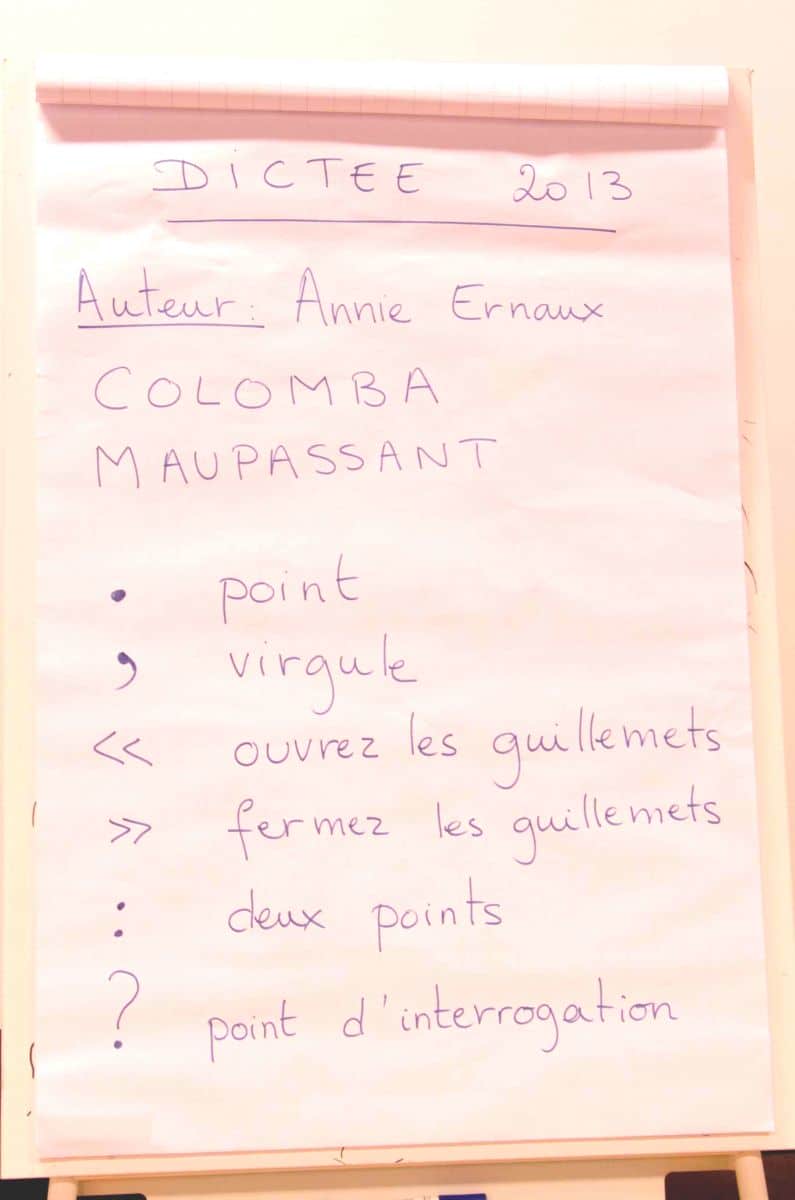 DiCTEE 2013
Auteur: Annie Ernaux
COLOMBA
MAUPASSANT
. point
, virgule
<< ouvrez les guillemets
>> fermez les guillemets
: deux points
? point d'interrogation